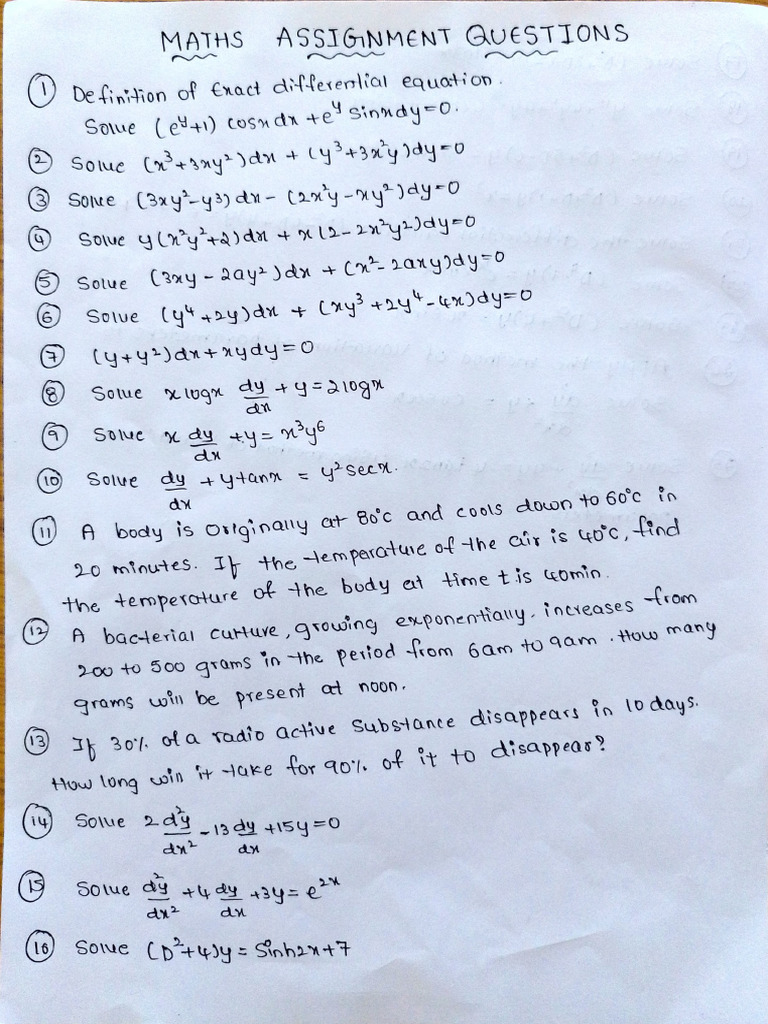 MATHS ASSIGNMENT QUESTIONS
① Definition of Exact differential equation.
Solve (e^y+1) cosx dx + e^y sinx dy=0.
② Solve (x³+3xy²)dx + (y³+3x²y)dy=0
③ Solve (3xy²-y³)dx - (2x²y-xy²)dy=0
④ Solve y(x²y²+2)dx + x(2-2x²y²)dy=0
⑤ Solve (3xy-2ay²)dx + (x²-2axy)dy=0
⑥ Solve (y⁴+2y)dx + (xy³+2y⁴-4x)dy=0
⑦ (y+y²)dx+xydy=0
⑧ Solve xlogx dy/dx + y=2logx
⑨ Solve x dy/dx +y= x³y⁶
⑩ Solve dy/dx + ytanx = y²secx.
⑪ A body is originally at 80°c and cools down to 60°c in
20 minutes. If the temperature of the air is 40°c, find
the temperature of the body at time t is 40min.
⑫ A bacterial culture, growing exponentially, increases from
200 to 500 grams in the period from 6am to 9am. How many
grams will be present at noon.
⑬ If 30% of a radio active substance disappears in 10 days.
How long will it take for 90% of it to disappear?
⑭ Solve 2 d²y/dx² -13 dy/dx +15y=0
⑮ Solve d²y/dx² +4 dy/dx +3y= e^2x
⑯ Solve (D²+4)y = Sinh2x+7